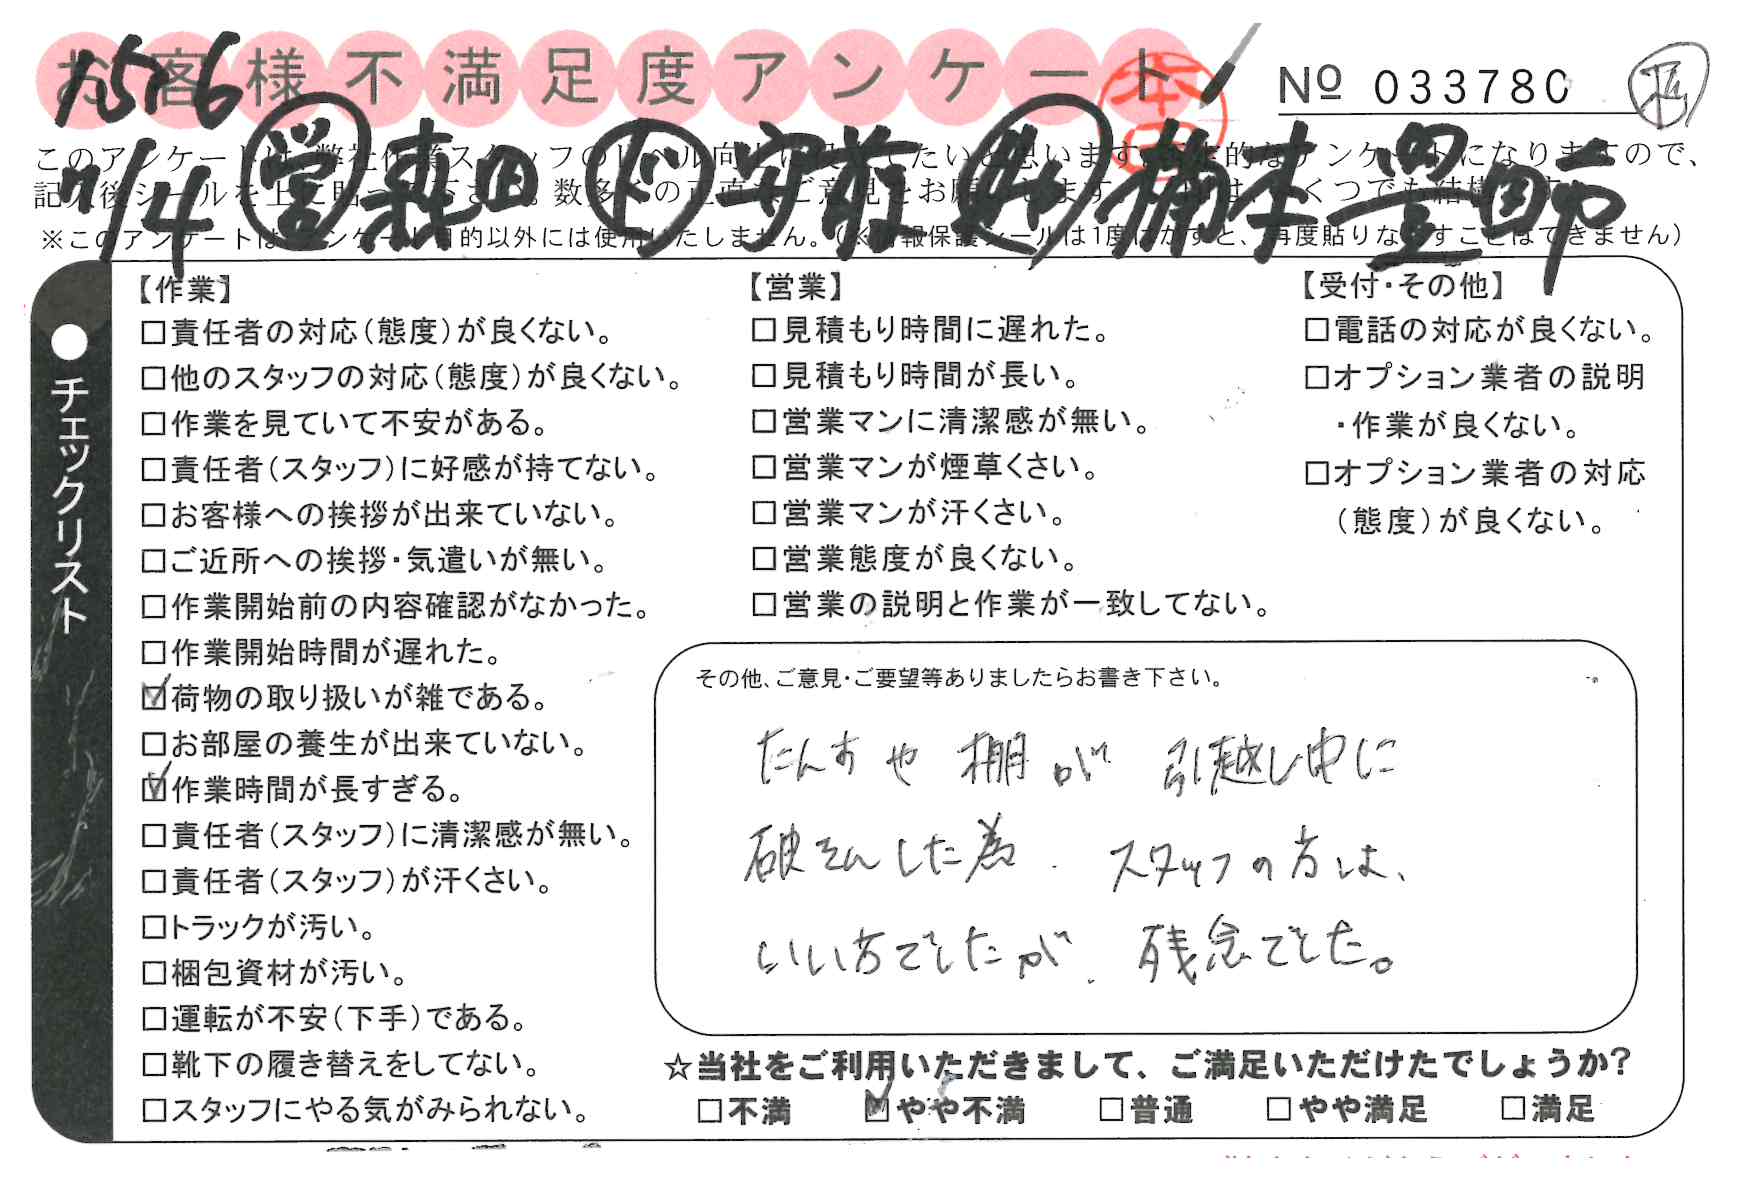 お客様不満足度アンケート
No 033780
7576
7/4 営 森田 ド 安前 助 楠本 豊田
※このアンケートは、アンケート目的以外には使用いたしません。(※情報保護シールは1度はがすと、再度貼りなおすことはできません)
●チェックリスト
【作業】
□責任者の対応(態度)が良くない。
□他のスタッフの対応(態度)が良くない。
□作業を見ていて不安がある。
□責任者(スタッフ)に好感が持てない。
□お客様への挨拶が出来ていない。
□ご近所への挨拶・気遣いが無い。
□作業開始前の内容確認がなかった。
□作業開始時間が遅れた。
☑荷物の取り扱いが雑である。
□お部屋の養生が出来ていない。
☑作業時間が長すぎる。
□責任者(スタッフ)に清潔感が無い。
□責任者(スタッフ)が汗くさい。
□トラックが汚い。
□梱包資材が汚い。
□運転が不安(下手)である。
□靴下の履き替えをしてない。
□スタッフにやる気がみられない。
【営業】
□見積もり時間に遅れた。
□見積もり時間が長い。
□営業マンに清潔感が無い。
□営業マンが煙草くさい。
□営業マンが汗くさい。
□営業態度が良くない。
□営業の説明と作業が一致してない。
【受付・その他】
□電話の対応が良くない。
□オプション業者の説明
・作業が良くない。
□オプション業者の対応
(態度)が良くない。
その他、ご意見・ご要望等ありましたらお書き下さい。
たんすや棚が引越し中に
破そんした為、スタッフの方は、
いい方でしたが、残念でした。
☆当社をご利用いただきまして、ご満足いただけたでしょうか?
□不満 ☑やや不満 □普通 □やや満足 □満足